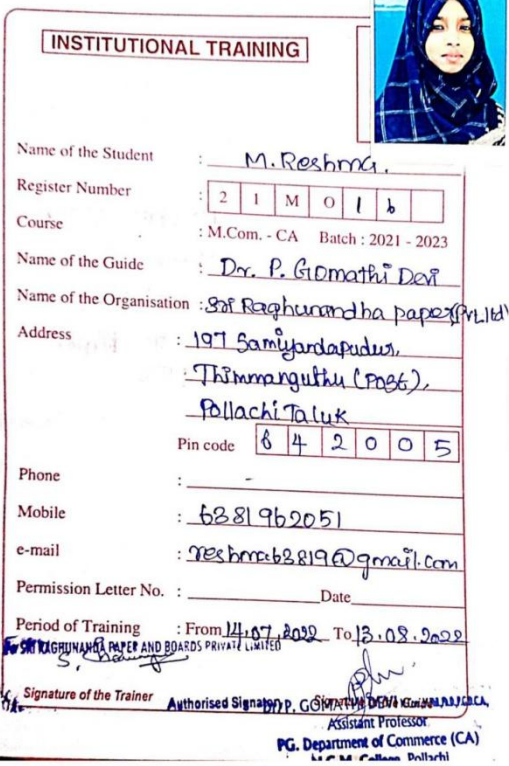 INSTITUTIONAL TRAINING
Name of the Student : M. Reshma.
Register Number : 2 1 M O 1 6
Course : M.Com. - CA Batch : 2021 - 2023
Name of the Guide : Dr. P. Gomathi Devi
Name of the Organisation : Sri Raghunandha paper (Pvt.ltd)
Address : 197 Samiyandapudur,
: Thimmanguthu (Post),
Pollachi Taluk
Pin code 6 4 2 0 0 5
Phone : -
Mobile : 6381962051
e-mail : reshma63819@gmail.com
Permission Letter No. : Date
Period of Training : From 14.07.2022 To 13.08.2022
For SRI RAGHUNANDA PAPER AND BOARDS PRIVATE LIMITED
Signature of the Trainer Authorised Signatory Dr. P. GOMATHI DEVI
Assistant Professor
PG. Department of Commerce (CA)
N.G.M. College, Pollachi